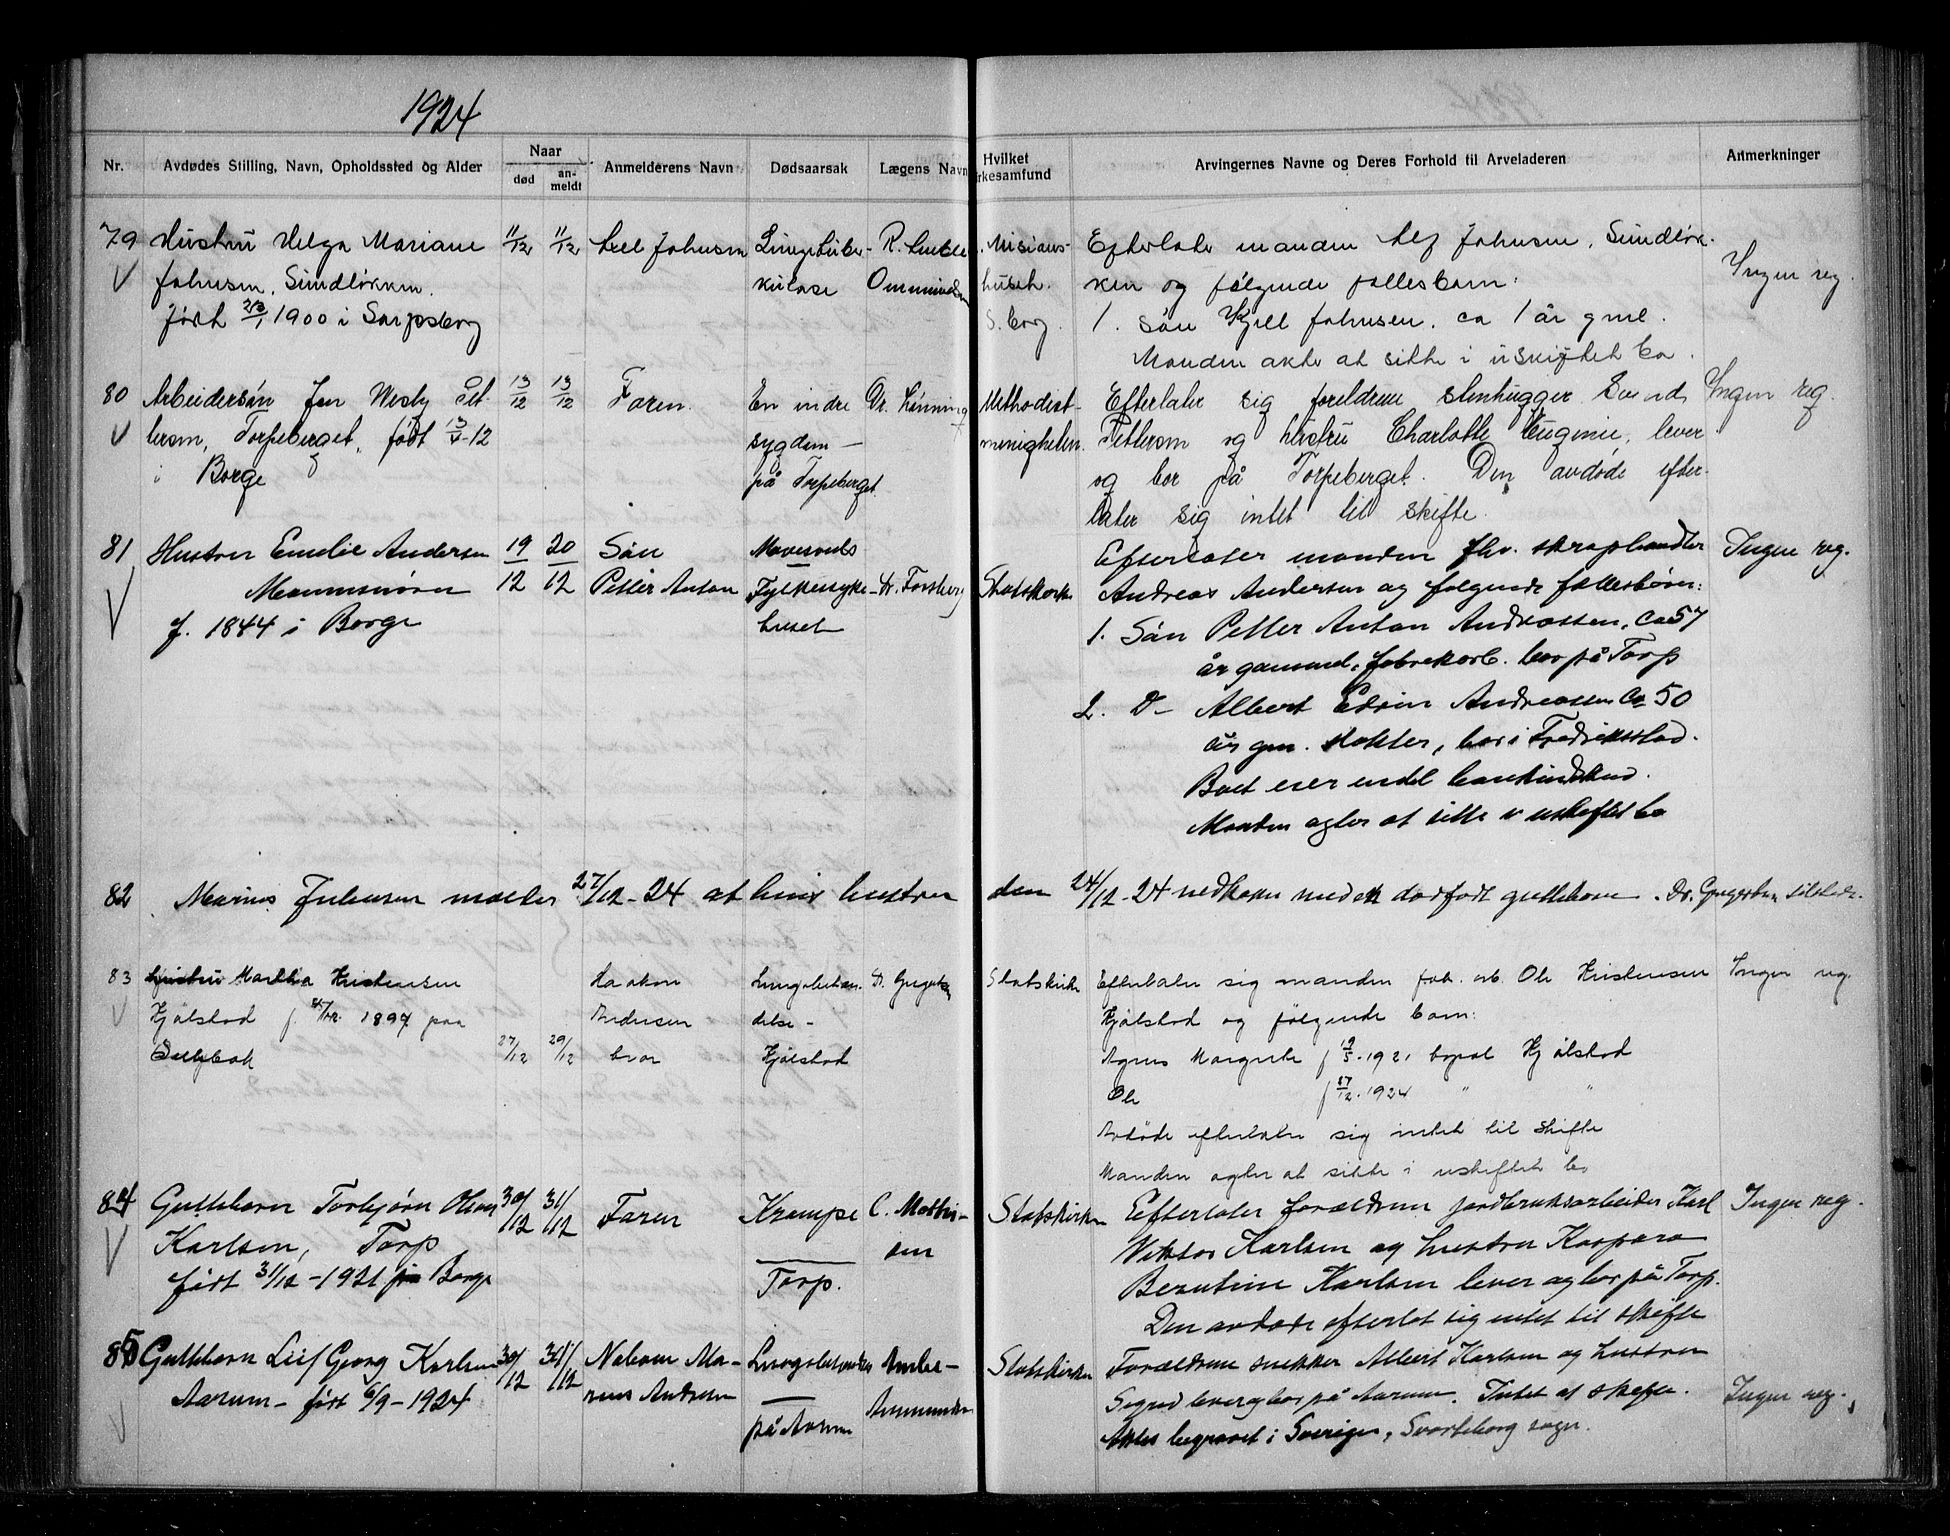 1924
Nr. Avdødes Stilling, Navn, Opholdssted og Alder Naar død an-meldt Anmelderens Navn Dødsaarsak Lægens Navn Hvilket rkesamfund Arvingernes Navne og Deres Forhold til Arveladeren Anmerkninger
79 Hustru Helga Mariane 11/12 11/12 Johnsen Lungetuber- R. Misions- Efterlater manden Johnsen, Sundløk-
Johnsen, Sundløkken. kulose huset. ken og følgende fellesbarn: Ingen reg.
født 23/1 1900 i Sarpsborg S.borg. 1. Søn Kjell Johnsen, ca 1 år gml.
Manden akter at sitte i uskiftet bo.
80 Arbeidersøn Jen Wesly Pet- 13/12 13/12 Faren. En indre Dr. Lønning Methodist- Efterlater sig foreldrene stenhugger Ingen reg.
tersen, Torpeberget, født 13/4-12 sygdom — menigheten. Pettersen og hustru Charlotte Eugenie, lever
i Borge på Torpeberget og bor på Torpeberget. Den avdøde efter-
later sig intet til skifte.
81 Hustru Emilie Andersen 19/12 20/12 Søn Mavesvuls Efterlater manden fhv. skraphandler Ingen reg.
Petter Anton Fylkessyke- Dr. Forsberg Statskirke Andreas Andersen og følgende fellesbørn:
f. 1844 i Borge huset 1. Søn Petter Anton Andreassen, ca 57
år gammel, fabrikarb. bor på Torp
2. D— Albert Edvin Andreassen ca 50
år gm. slakter, bor i Fredrikstad.
Boet eier endel bankindskud.
Manden agter at sitte i uskiftet bo
82 Marius Julensen melder 27/12-24 at hans hustru den 24/12-24 nedkom med et dødfødt guttebarn. Dr. tilstede.
83 Hustru Martha Kristensen Haakon Dr. Statskirke Efterlater sig manden fab. arb. Ole Kristensen Ingen reg.
Hjølstad f. 1897 paa Pedersen Hjølstad og følgende barn:
27/12 29/12 bror Hjølstad Agnes Margrete f 19/5-1921 bopæl Hjølstad
Ole f 27/12-1924 " "
Avdøde efterlater sig intet til skifte
Manden agter at sitte i uskiftet bo
84 Guttebarn Torbjørn Oliver 30/12 31/12 Faren Krampe C. Mathis- Statskirken Efterlater forældrene jordbruksarbeider Karl Ingen reg.
Karlsen, Torp Torp. en Viktor Karlsen og hustru Kaspara
født 31/12-1921 i Borge Berntine Karlsen lever og bor på Torp.
Den avdøde efterlot sig intet til skifte
85 Guttebarn Leif Georg Karlsen 30/12 31/12 Naboen Ma- Statskirken Forældrene snekker Albert Karlsen og hustru
Aarum - født 6/9-1924 rius Andersen på Aarum Ammundsen Sigrid lever og bor på Aarum. Intet at skifte. Ingen reg.
Aktes begravet i Sverige, Svarteborg sogn.